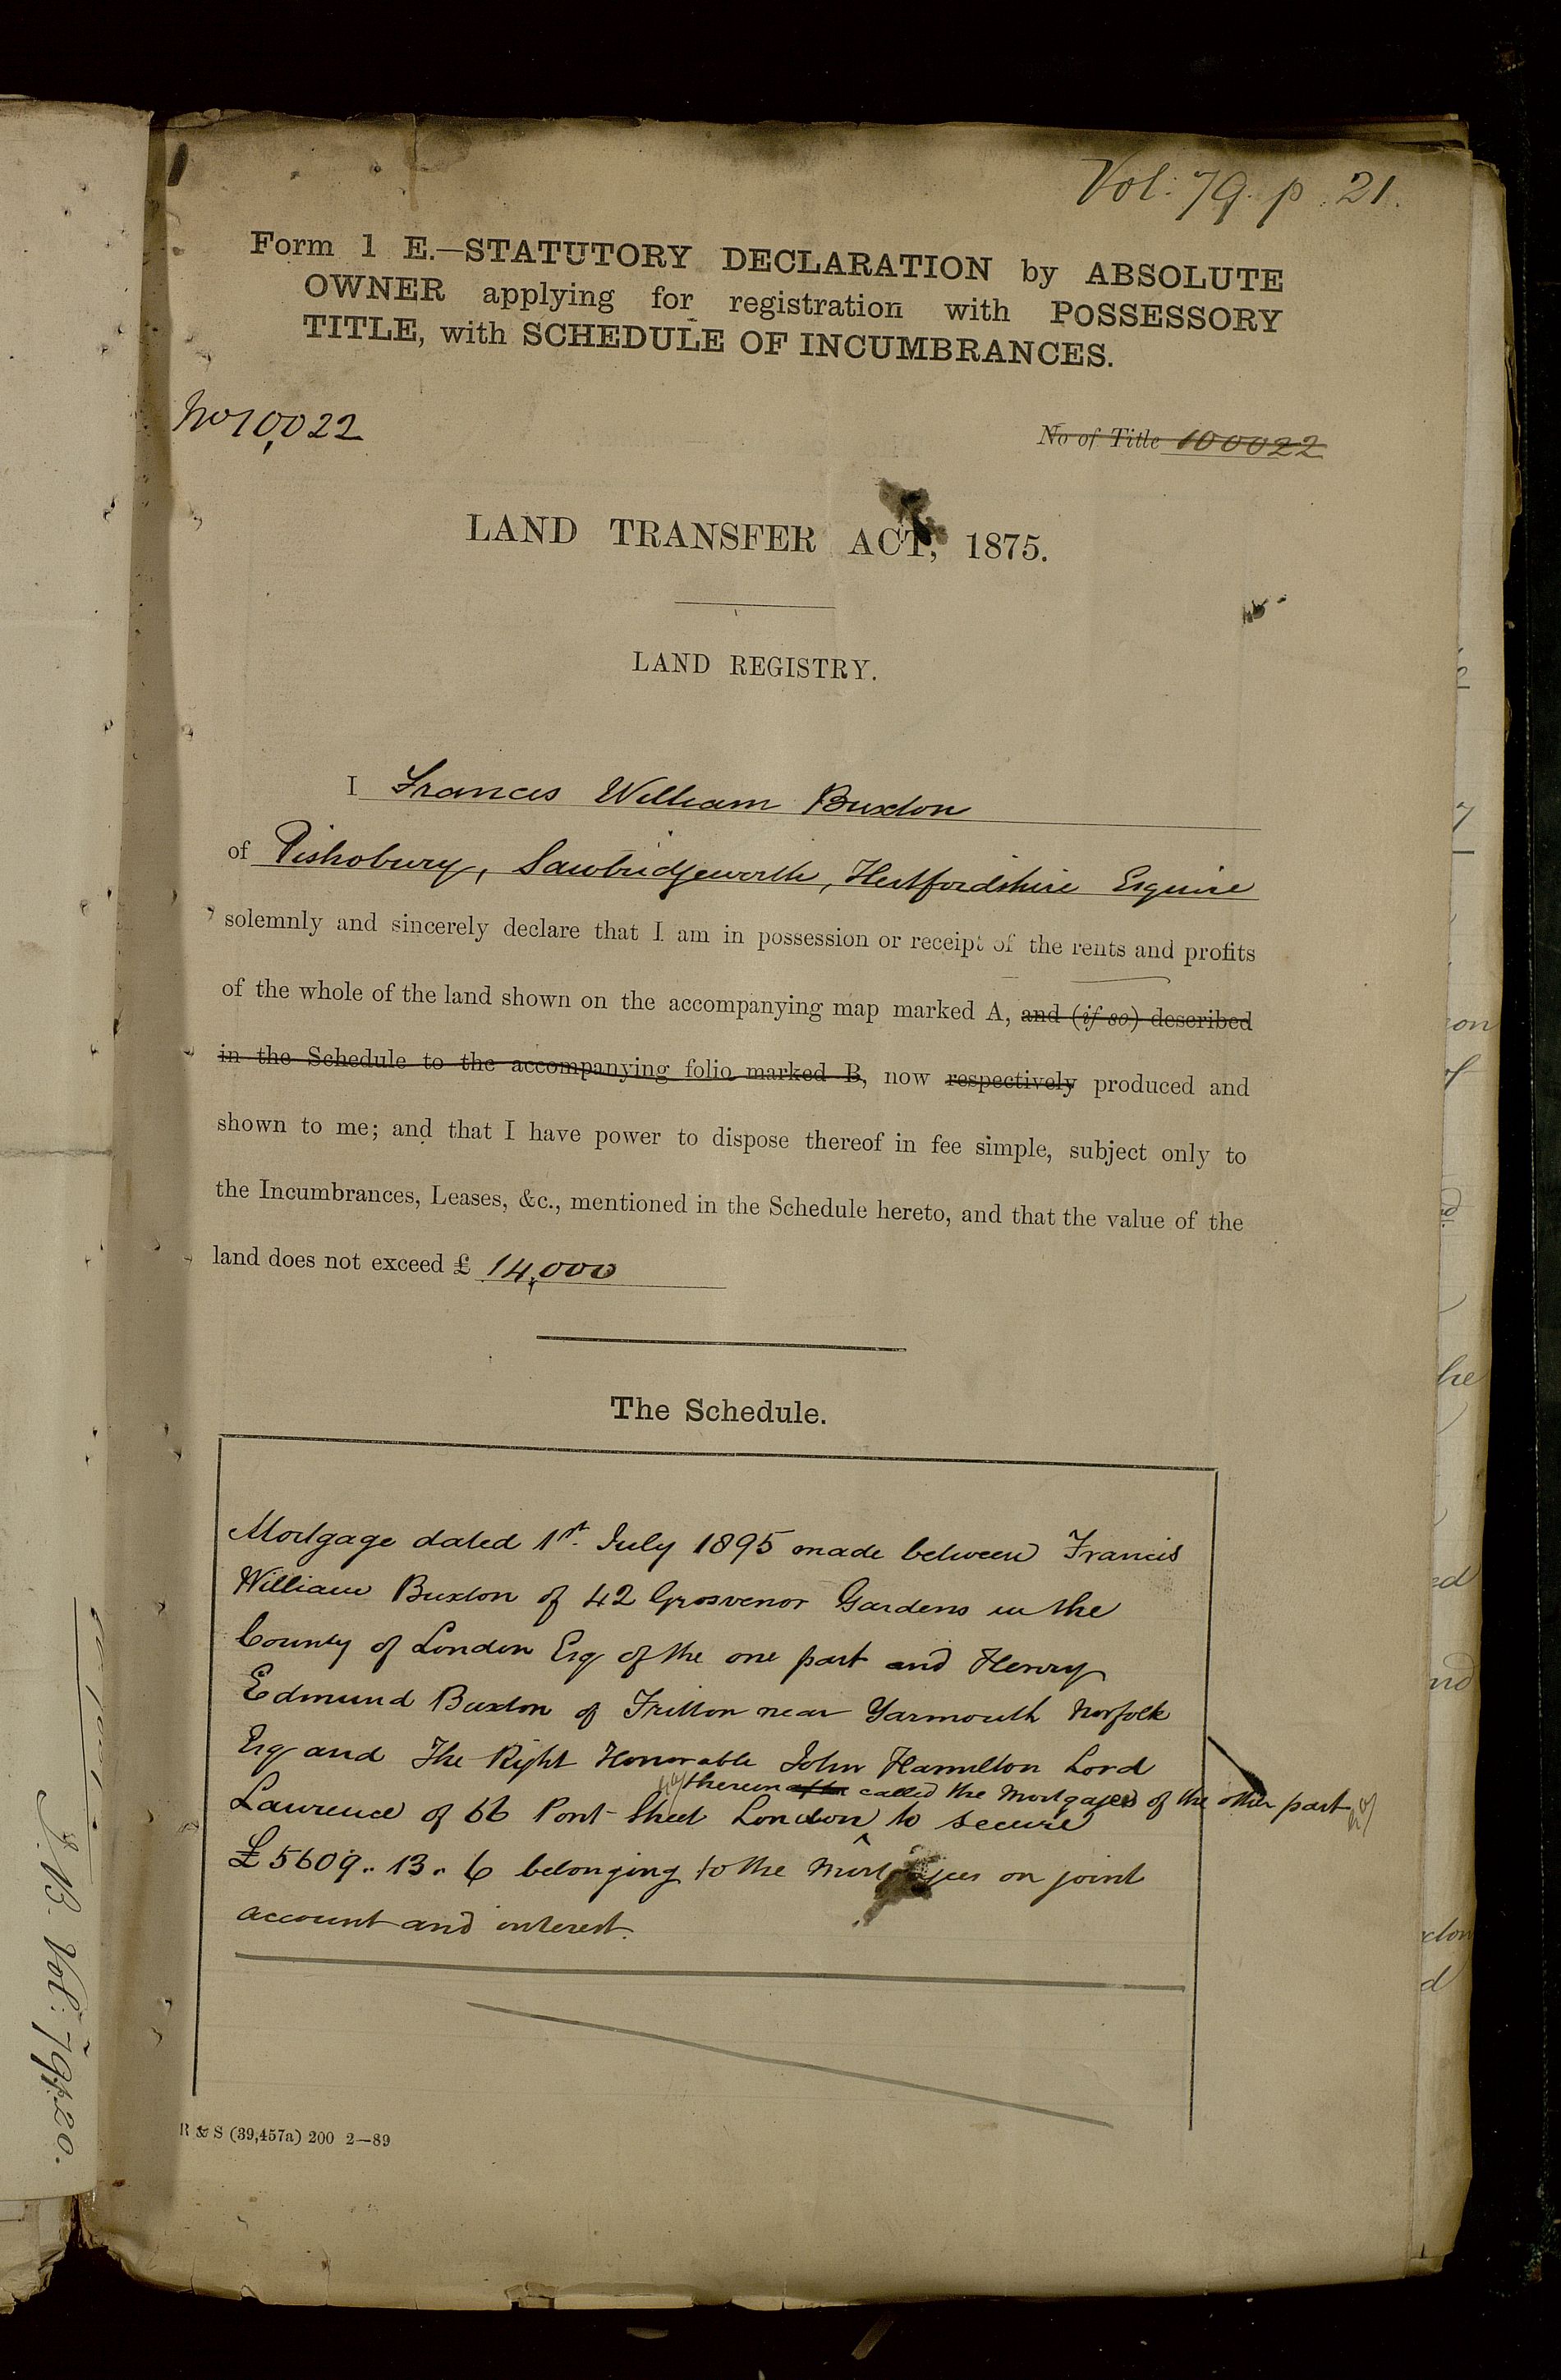 Vol: 79. p. 21.
Form 1 E.—STATUTORY DECLARATION by ABSOLUTE
OWNER applying for registration with POSSESSORY
TITLE, with SCHEDULE OF INCUMBRANCES.
No 10,022
No of Title 100022
LAND TRANSFER ACT, 1875.
LAND REGISTRY.
I Francis William Buxton
of Pishobury, Sawbridgeworth, Hertfordshire Esquire
solemnly and sincerely declare that I am in possession or receipt of the rents and profits
of the whole of the land shown on the accompanying map marked A, and (if so) described
in the Schedule to the accompanying folio marked B, now respectively produced and
shown to me; and that I have power to dispose thereof in fee simple, subject only to
the Incumbrances, Leases, &c., mentioned in the Schedule hereto, and that the value of the
land does not exceed £ 14,000
The Schedule.
Mortgage dated 1st. July 1895 made between Francis
William Buxton of 42 Grosvenor Gardens in the
County of London Esq of the one part and Henry
Edmund Buxton of Fritton near Yarmouth Norfolk
Esq and The Right Honorable John Hamilton Lord
therein after called the Mortgagees of the other part
Lawrence of 66 Pont Street London to secure
£5609.. 13.. 6 belonging to the Mortgagees on joint
account and interest.
R & S (39,457a) 200 2—89
Vol: 79 p. 20.
on
of
he
ed
nd
xton
d